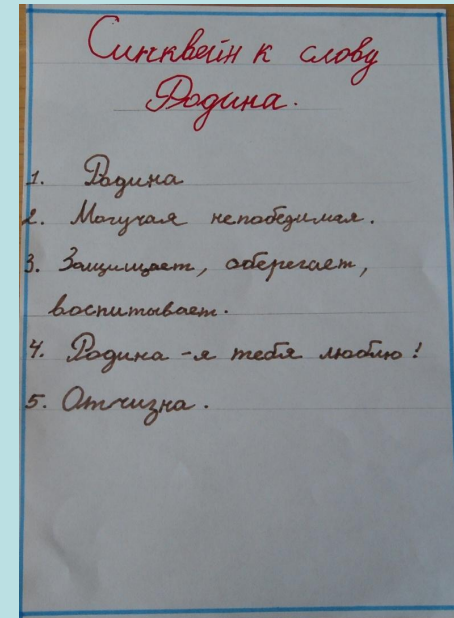 Синквейн к слову
Родина.
1. Родина
2. Могучая непобедимая.
3. Защищает, оберегает,
воспитывает.
4. Родина - я тебя люблю!
5. Отчизна.